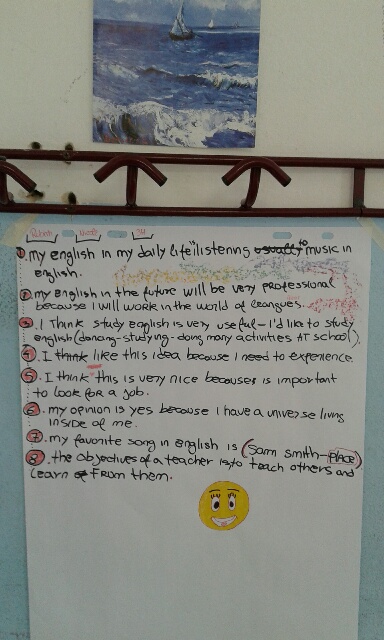 ① my english in my daily life "listening to music in
english.
② my english in the future will be very professional
because I will work in the world of leangues.
③ . I Think study english is very useful - I'd like to study
english (dancing-studying-doing many activities AT school).
④ . I think like this idea because I need to experience
⑤ . I think this is very nice becouses is important
to look for a job.
⑥ . my opinion is yes because I have a universe living
inside of me.
⑦ . my favorite song in english is (Sam smith-PLACE)
⑧ . the objectives of a teacher is to teach others and
Learn From them.